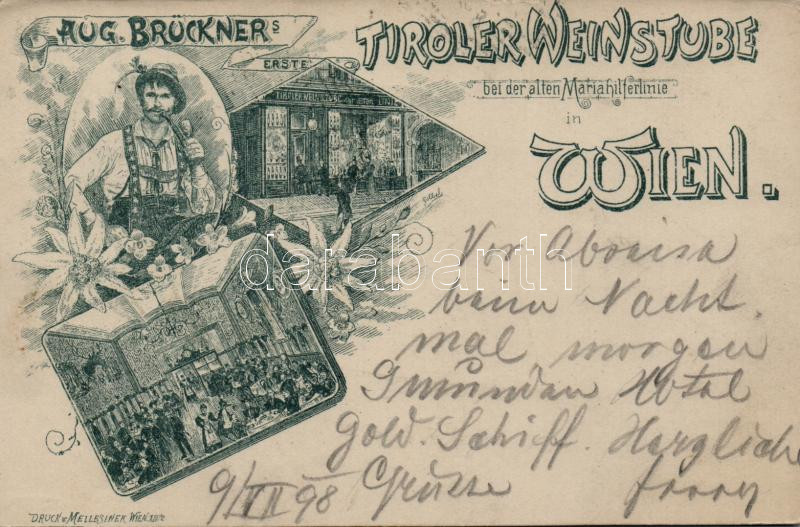 AUG. BRÜCKNERS
ERSTE
TIROLER WEINSTUBE
bei der alten Mariahilferlinie
in
WIEN.
Vor Abreise
beim Nacht
mal morgen
Gmunden Hotel
Gold. Schiff. Herzliche
Grüsse
9/VII 98
darabanth.com
DRUCK v. MELLESINEK WIEN